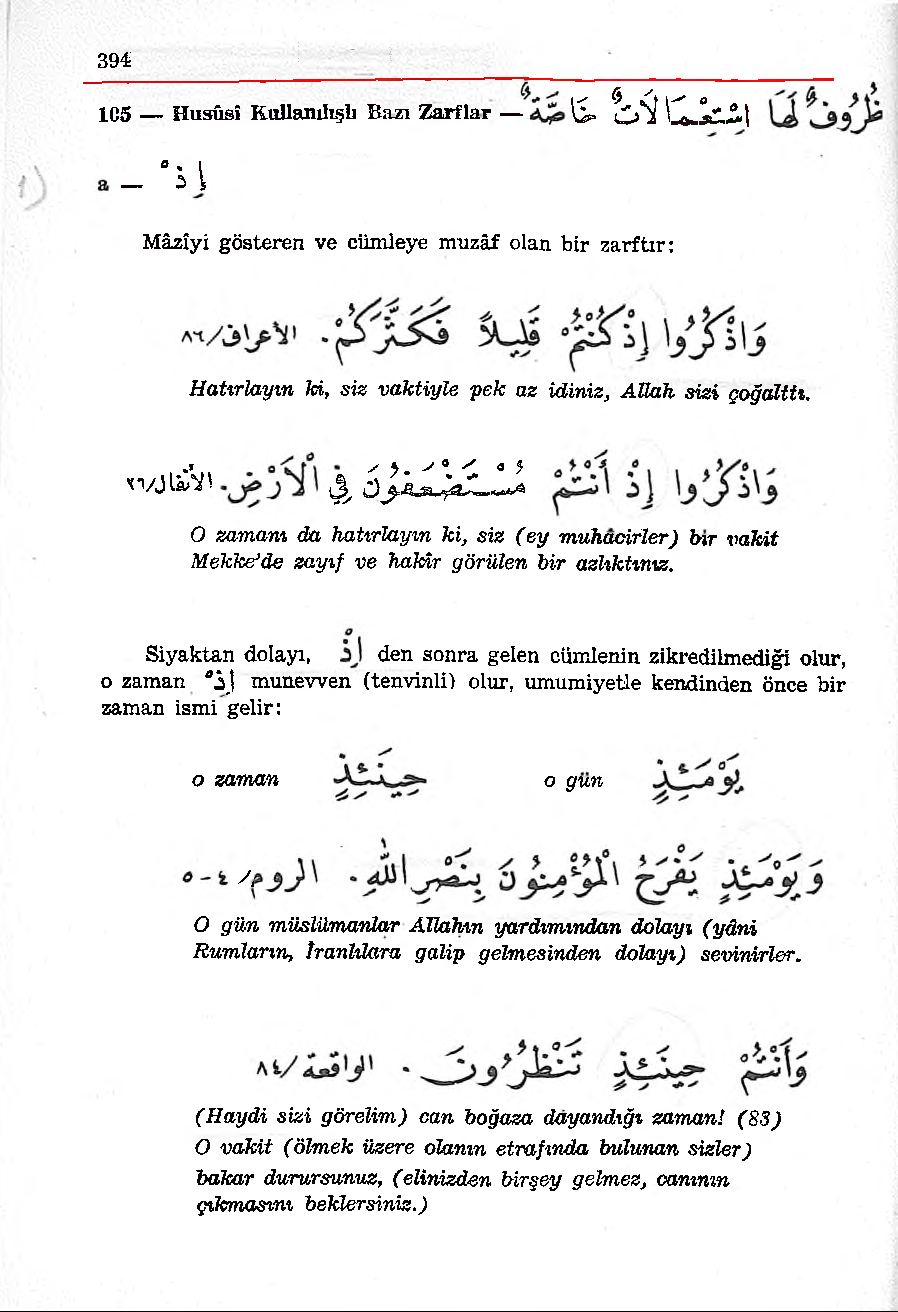 394
105 — Husûsî Kullanılışlı Bazı Zarflar — ظُرُوفٌ لَهَا اِسْتِعْمَالَاتٌ خَاصَّةٌ
1)
a — إِذْ
Mâzîyi gösteren ve cümleye muzâf olan bir zarftır:
وَاذْكُرُوا إِذْ كُنْتُمْ قَلِيلاً فَكَثَّرَكُمْ. الأعراف/٨٦
Hatırlayın ki, siz vaktiyle pek az idiniz, Allah sizi çoğalttı.
وَاذْكُرُوا إِذْ أَنْتُمْ مُسْتَضْعَفُونَ فِي الْأَرْضِ. الأنفال/٢٦
O zamanı da hatırlayın ki, siz (ey muhâcirler) bir vakit
Mekke'de zayıf ve hakîr görülen bir azlıktınız.
Siyaktan dolayı, إِذْ den sonra gelen cümlenin zikredilmediği olur,
o zaman إِذْ munevven (tenvinli) olur, umumiyetle kendinden önce bir
zaman ismi gelir:
o zaman حِينَئِذٍ o gün يَوْمَئِذٍ
وَيَوْمَئِذٍ يَفْرَحُ الْمُؤْمِنُونَ بِنَصْرِ اللهِ. الروم/٤-٥
O gün müslümanlar Allahın yardımından dolayı (yâni
Rumların, İranlılara galip gelmesinden dolayı) sevinirler.
وَأَنْتُمْ حِينَئِذٍ تَنْظُرُونَ. الواقعة/٨٤
(Haydi sizi görelim) can boğaza dayandığı zaman! (83)
O vakit (ölmek üzere olanın etrafında bulunan sizler)
bakar durursunuz, (elinizden birşey gelmez, canının
çıkmasını beklersiniz.)